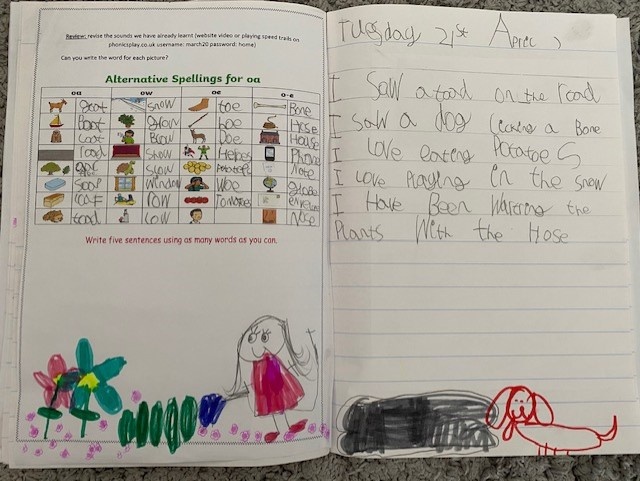 Review: revise the sounds we have already learnt (website video or playing speed trails on
phonicsplay.co.uk username: march20 password: home)
Can you write the word for each picture?
Alternative Spellings for oa
oa ow oe o-e
goat snow toe Bone
Boat grow hoe Hose
Coat Blow Doe House
road Show Heroes Phone
slow Potatoes note
soap window Woe globe
loaf Row Tomatoes
toad Low Nose
Write five sentences using as many words as you can.
Tuesday 21st
I Saw a toad on the road
I saw a dog licking a Bone
I Love eating Potatoes
I Love Playing in the snow
I Have Been Watring the
Plants With the Hose